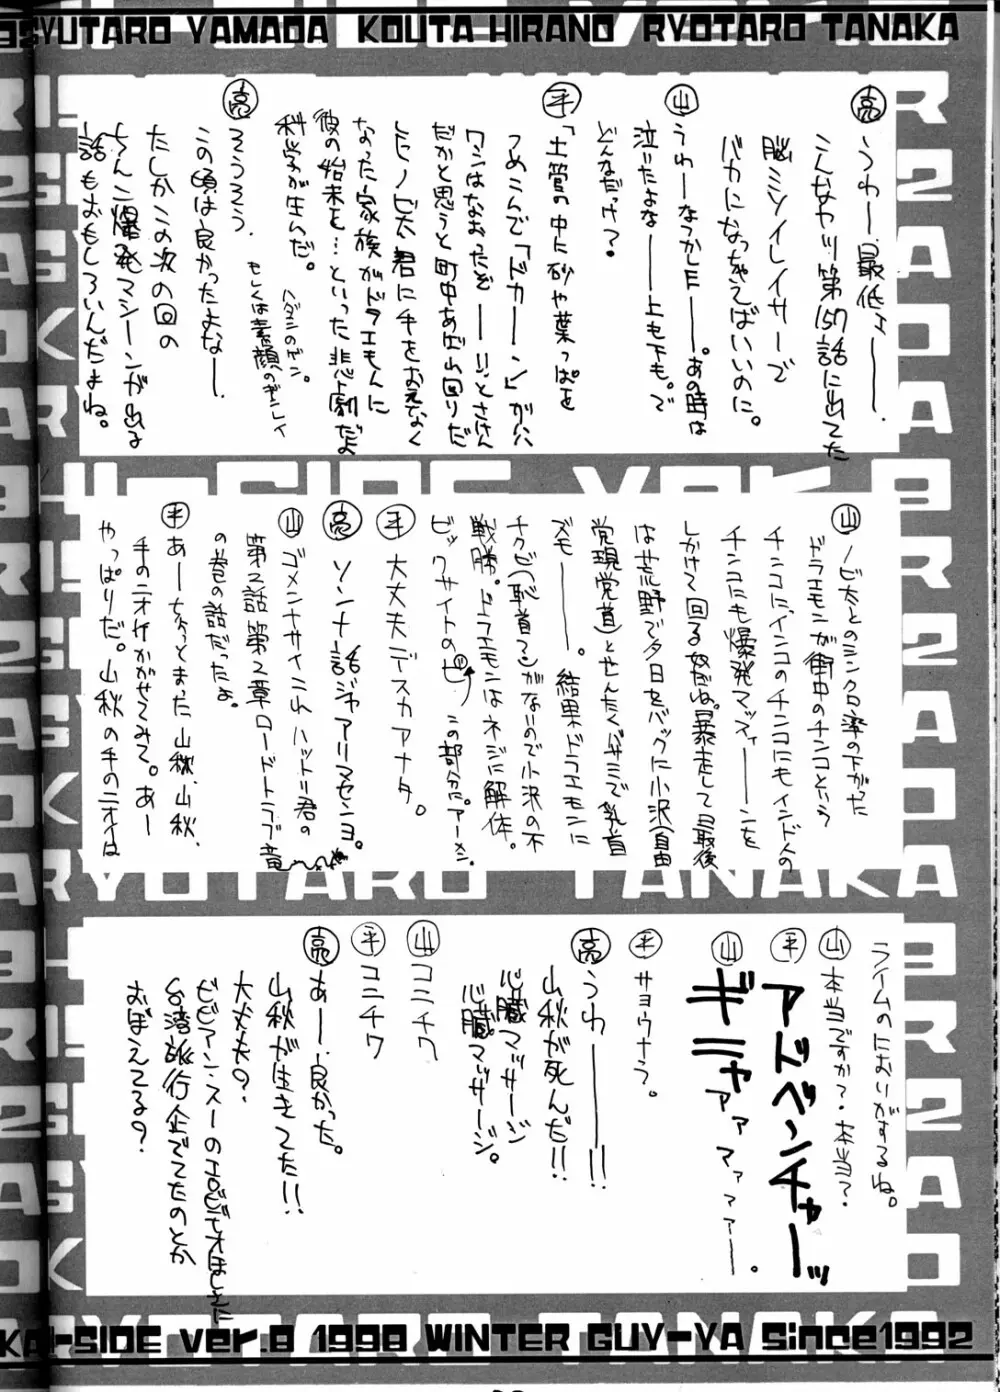 SYUTARO YAMADA KOUTA HIRANO RYOTARO TANAKA
亮 うわー、最低ェ———。
こんなヤツ第157話に出てた
脳ミソイレイサーで
バカになっちゃえばいいのに。
山 うわーなつかしE——。あの時は
泣いたよな——上も下も。で
どんなだっけ？
平 「土管の中に砂や葉っぱを
つめこんで「ドカーーン」がハハ
ワシはなおったぞ——!!とさけん
だかと思うと町中あだ山回りだ
したノビ太君に手をおえなく
なった家族がドラエもんに
彼の始末を…といった悲劇だよ
科学が生んだ。
もしくは素顔の
亮 そうそう、
この頃は良かったよなー。
たしかこの次の回の
ちんこ爆発マシーンが出る
話もおもしろいんだよね。
山 ノビ太とのシンクロ率の下がった
ドラエモンが街中のチンコという
チンコに、インコのチンコにもインド人の
チンコにも爆発マッスィーーンを
しかけて回る奴だね。暴走して最後
は荒野で夕日をバックに小沢(自由
党現党首)とせんたくバサミで乳首
ズモー——。結果ドラエモンに
チクビ(恥首マン)がないので小沢の不
戦勝。ドラエモンはネジに解体。
ビックサイトのピ この部分に。アーメン。
平 大丈夫デスカアナタ。
亮 ソンナ話ジャアリマセンヨ。
山 ゴメンナサイこれハットリ君の
第2話第2章ロードトラブ竜
の巻の話だったよ。
平 あーちょっとまった山秋、山秋、
手のニオイかがせてみて。あー
やっぱりだ。山秋の手のニオイは
ライムのにおいがするね。
山 本当ですか？・本当？
平 アドベンチャーッ
山 ギニャァァァマァァァー。
平 サヨウナラ。
亮 うわ———!!
山秋が死んだ!!
心臓マッサージ
心臓マッサージ。
山 コニチワ
平 コニチワ
亮 あー、良かった。
山秋が生きてた!!
大丈夫？
ビビアン・スーのエロビデオほしさに
台湾旅行企てたのとか
おぼえてる？
KAI-SIDE ver.8 1998 WINTER GUY-YA Since1992